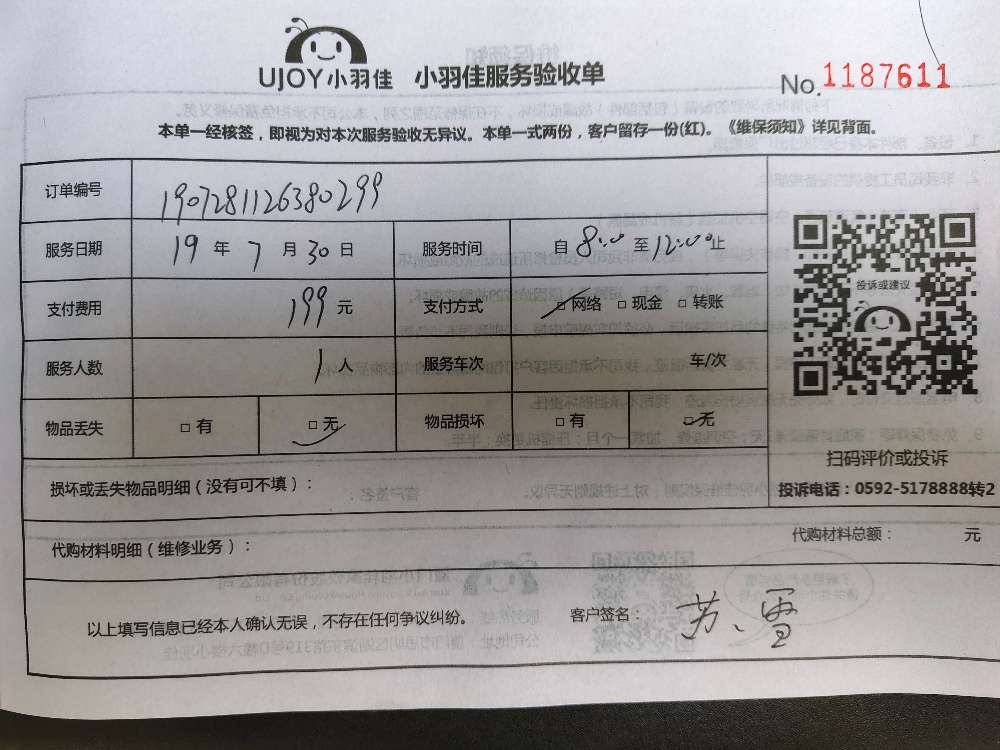 UJOY小羽佳 小羽佳服务验收单
No. 1187611
本单一经核签，即视为对本次服务验收无异议。本单一式两份，客户留存一份(红)。《维保须知》详见背面。
订单编号 1907281126380299
服务日期 19 年 7 月 30 日 服务时间 自 8:00 至 12:00 止
投诉或建议
支付费用 199 元 支付方式 □ 网络 □ 现金 □ 转账
服务人数 1 人 服务车次 车/次
物品丢失 □ 有 □ 无 物品损坏 □ 有 □ 无
扫码评价或投诉
投诉电话：0592-5178888转2
损坏或丢失物品明细（没有可不填）：
代购材料明细（维修业务）： 代购材料总额： 元
以上填写信息已经本人确认无误，不存在任何争议纠纷。 客户签名： 苏、雪